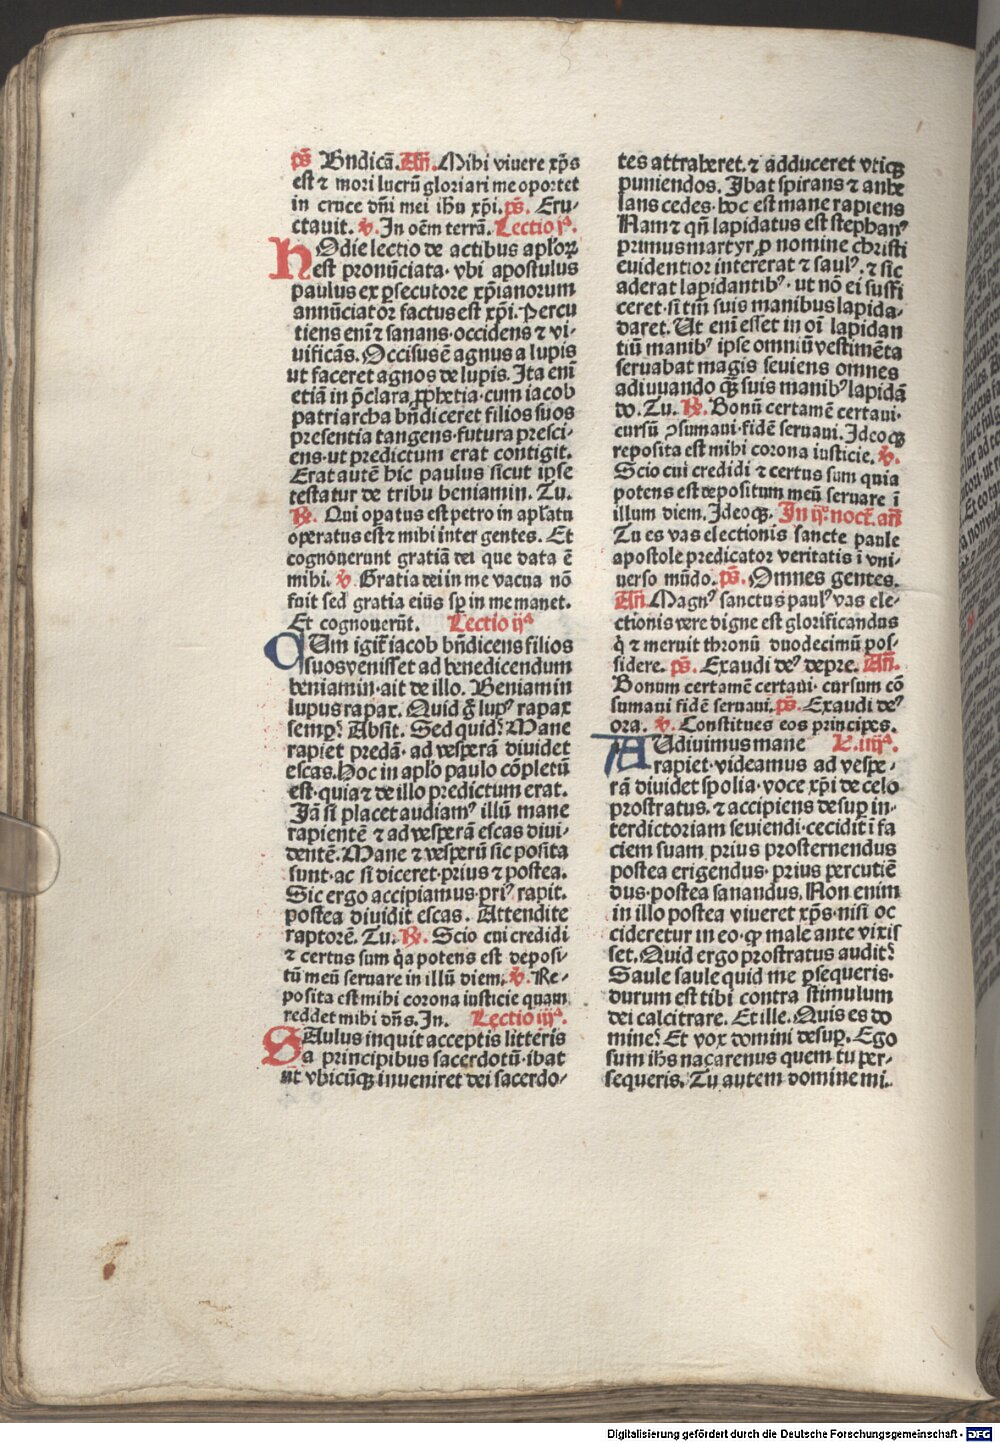 ps̄ Bn̄dicā. Añ. Mihi viuere xp̄s
est ⁊ mori lucrū gloriari me oportet
in cruce dn̄i mei ih̄u xp̄i. ps̄. Eru-
ctauit. v̄. In oēm terrā. Lectio jᵃ.
HOdie lectio de actibus apl̄oꝝ
est pronūciata · vbi apostulus
paulus ex ꝑsecutore xp̄ianorum
annūciator factus est xp̄i. Percu
tiens enī ⁊ sanans · occidens ⁊ vi-
uificās. Occisus ē agnus a lupis
ut faceret agnos de lupis. Ita enī
etiā in p̄clara ꝓphetia · cum iacob
patriarcha bn̄diceret filios suos
presentia tangens · futura presci-
ens · ut predictum erat contigit.
Erat autē hic paulus sicut ipse
testatur de tribu beniamin. Tu.
R̄. Qui oꝑatus est petro in apl̄atu
operatus est ⁊ mihi inter gentes. Et
cognouerunt gratiā dei que data ē
mihi. v̄. Gratia dei in me vacua nō
fuit sed gratia eius sp̄ in me manet.
Et cognouerūt. Lectio ijᵃ
CUm igit̄ iacob bn̄dicens filios
suos venisset ad benedicendum
beniamin · ait de illo. Beniamin
lupus rapax. Quid g̃ lupꝰ rapax
semꝑ? Absit. Sed quid? Mane
rapiet predā · ad vesperā diuidet
escas. Hoc in apl̄o paulo cōpletū
est · quia ⁊ de illo predictum erat.
Jā si placet audiamꝰ illū mane
rapientē ⁊ ad vesperā escas diui-
dentē. Mane ⁊ vesperū sic posita
sunt · ac si diceret · prius ⁊ postea.
Sic ergo accipiamus · priꝰ rapit.
postea diuidit escas. Attendite
raptorē. Tu. R̄. Scio cui credidi
⁊ certus sum q̇a potens est deposi-
tū meū seruare in illū diem. v̄. Re-
posita est mihi corona iusticie quam
reddet mihi dn̄s. In. Lectio iijᵃ.
SAulus inquit acceptis litteris
a principibus sacerdotū · ibat
ut vbicūqꝫ inueniret dei sacerdo-
tes attraheret · ⁊ adduceret vtiqꝫ
puniendos. Ibat spirans ⁊ anhe
lans cedes · hoc est mane rapiens
Nam ⁊ qn̄ lapidatus est stephanꝰ
primus martyr, ꝓ nomine christi
euidentior intererat ⁊ saulꝰ. ⁊ sic
aderat lapidantibꝰ · ut nō ei suffi
ceret · si tm̄ suis manibus lapida-
daret. Ut enī esset in oī lapidan
tiū manibꝰ ipse omniū vestimēta
seruabat magis seuiens omnes
adiuuando qꝫ suis manibꝰ lapidā
do. Tu. R̄. Bonū certamē certaui ·
cursū ꝯsumaui · fidē seruaui. Ideoqꝫ
reposita est mihi corona iusticie. v̄.
Scio cui credidi ⁊ certus sum quia
potens est depositum meū seruare ī
illum diem. Ideoqꝫ. In ijᵒ noct̄. añ
Tu es vas electionis sancte paule
apostole predicator veritatis ī vni-
uerso mūdo. ps̄. Omnes gentes.
Añ. Magnꝰ sanctus paulꝰ vas ele-
ctionis vere digne est glorificandus
q̇ ⁊ meruit thronū duodecimū pos-
sidere. ps̄. Exaudi deꝰ depre. Añ.
Bonum certamē certaui · cursum cō
sumaui fidē seruaui. ps̄. Exaudi deꝰ
ora. v̄. Constitues eos principes.
AUdiuimus mane L. iiijᵃ.
rapiet · videamus ad vespe-
rā diuidet spolia · voce xp̄i de celo
prostratus. ⁊ accipiens desuꝑ in-
terdictoriam seuiendi · cecidit ī fa
ciem suam. prius prosternendus
postea erigendus · prius percutiē
dus · postea sanandus. Non enim
in illo postea viueret xp̄s · nisi oc
cideretur in eo · qꝫ male ante vixis
set. Quid ergo prostratus audit?
Saule saule quid me ꝑsequeris.
durum est tibi contra stimulum
dei calcitrare. Et ille. Quis es do
mine? Et vox domini desuꝑ. Ego
sum ih̄s naçarenus quem tu per-
sequeris. Tu autem domine mi..
Digitalisierung gefördert durch die Deutsche Forschungsgemeinschaft - DFG